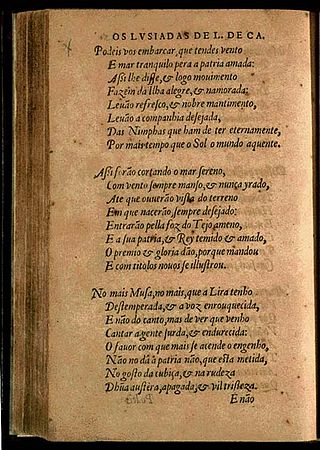 OS LVSIADAS DE L. DE CA.
Podeis vos embarcar, que tendes vento
E mar tranquilo pera a patria amada:
Assi lhe disse, & logo mouimento
Fazem da Ilha alegre, & namorada:
Leuão refresco, & nobre mantimento,
Leuão a companhia desejada,
Das Nimphas que ham de ter eternamente,
Por mais tempo que o Sol o mundo aquente.
Assi forão cortando o mar sereno,
Com vento sempre manso, & nunca yrado,
Ate que ouuerão vista do terreno
Em que nacerão, sempre desejado:
Entrarão pella foz do Tejo ameno,
E a sua patria, & Rey temido & amado,
O premio & gloria dão, porque mandou
E com titolos nouos se illustrou.
No mais Musa, no mais, que a Lira tenho
Destemperada, & a voz enrouquecida,
E não do canto, mas de ver que venho
Cantar a gente surda, & endurecida:
O fauor com que mais se acende o engenho,
Não no dâ a patria não, que esta metida,
No gosto da cubiça, & na rudeza
Dhũa austera, apagada, & vil tristeza.
E não